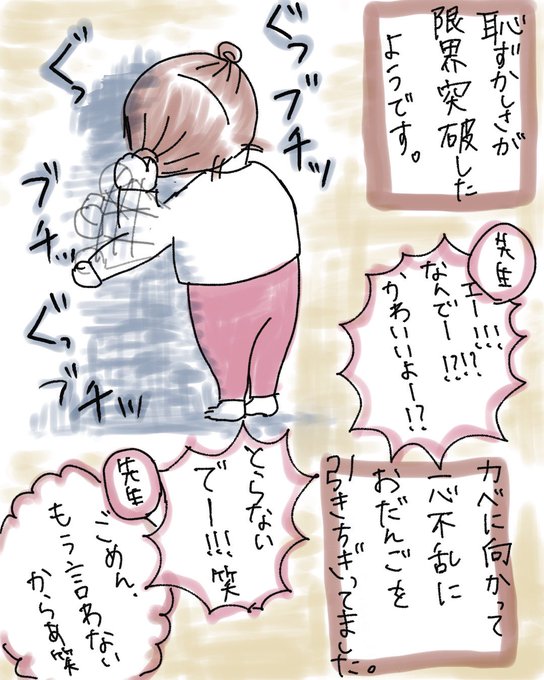 恥ずかしさが
限界突破した
ようです。
ぐっ
ブチッ
ぐっ
ブチッ
ぐっ
ブチッ
先生
エー!!!!
なんでー!?!?
かわいいよー!?
カベに向かって
一心不乱に
おだんごを
引きちぎってました。
とらない
でー!!!笑
先生
ごめん、
もう言わない
からぁ笑